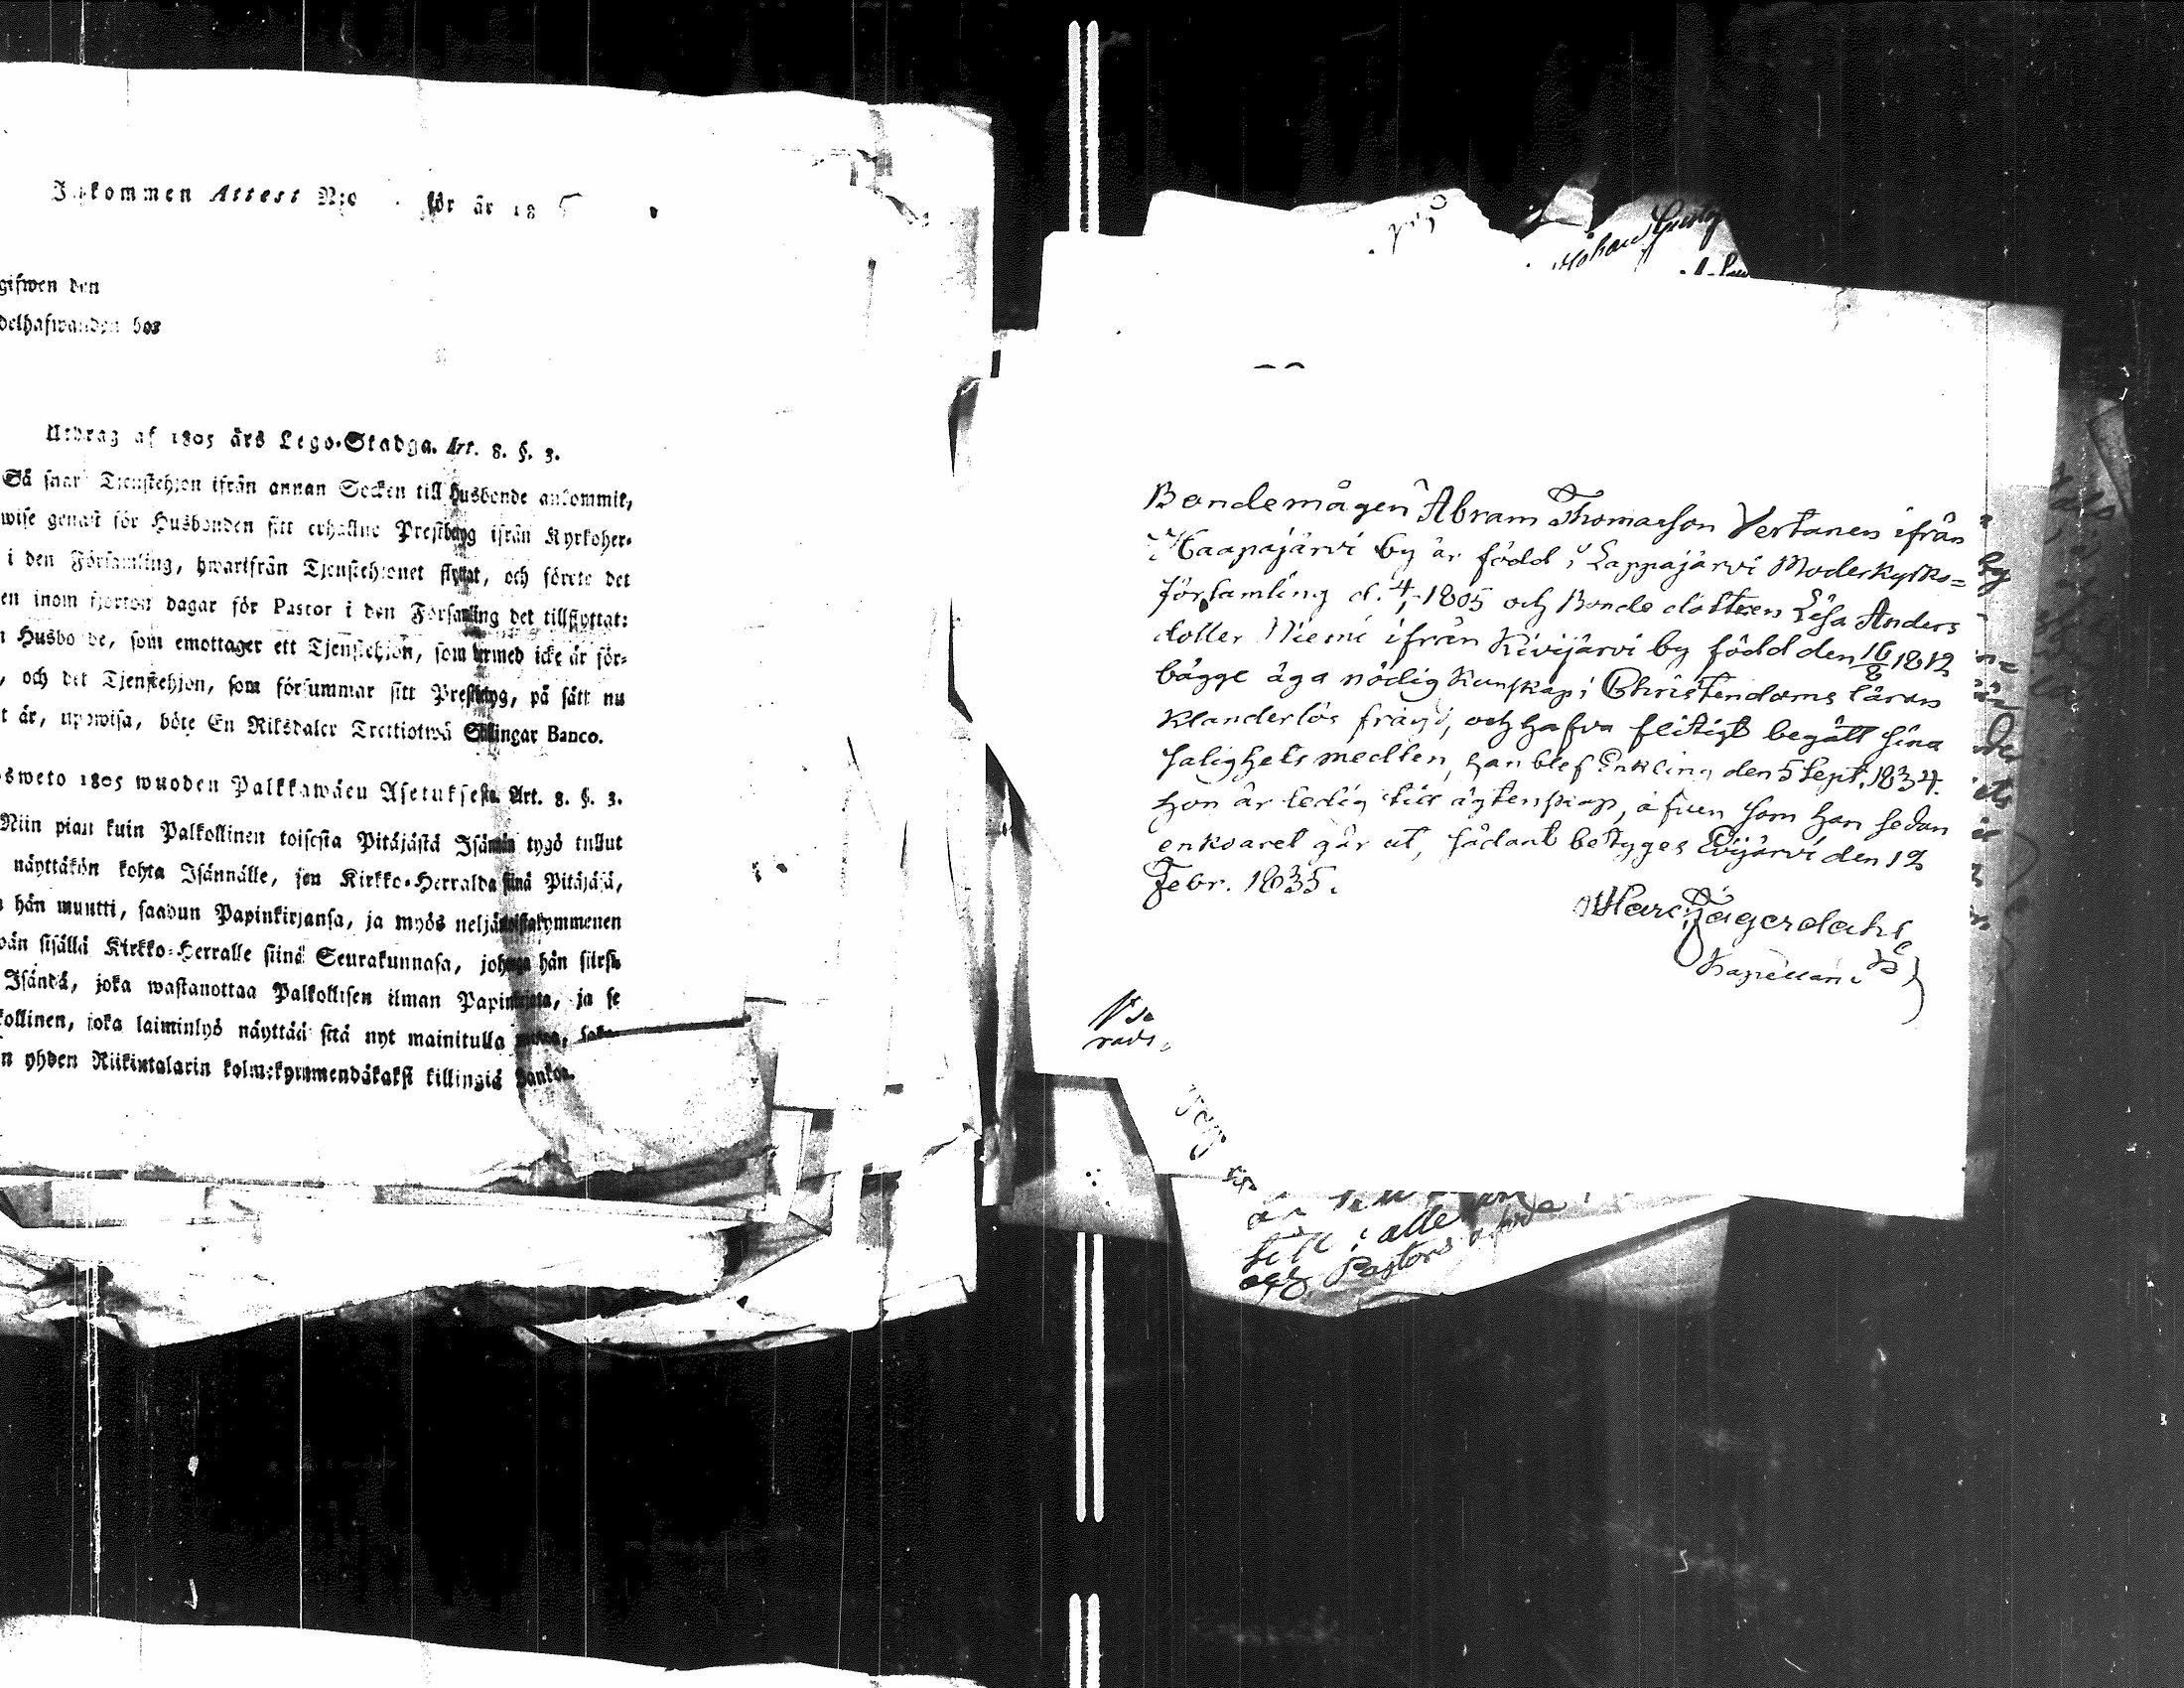 Inkommen Attest N:o för år 18
gifwen den
delhafwanden hos
Utdrag af 1805 års Lego-Stadga. Art. 8. §. 3.
Så snart Tjenstehjon ifrån annan Socken till Husbonde ankommit,
wise genast för Husbonden sitt erhållne Prestbetyg ifrån Kyrkoher-
i den Församling, hwarifrån Tjenstehjonet flyttat, och förete det
en inom fjorton dagar för Pastor i den Församling det tillflyttat:
n Husbonde, som emottager ett Tjenstehjon, som dermed icke är för-
, och det Tjenstehjon, som försummar sitt Prestbetyg, på sätt nu
t är, uppwisa, böte En Riksdaler Trettiotwå Skillingar Banco.
osweto 1805 wuoden Palkkawäen Asetuksesta. Art. 8. §. 3.
Niin pian kuin Palkollinen toisesta Pitäjästä Isännän tygö tullut
näyttäkön kohta Isännälle, sen Kirkko-Herralda siinä Pitäjäsä,
a hän muutti, saadun Papinkirjansa, ja myös neljäntoistakymmenen
wän sisällä Kirkko-Herralle siinä Seurakunnasa, johonga hän siirsi.
Isändä, joka wastanottaa Palkollisen ilman Papinkirjata, ja se
kollinen, joka laiminlyö näyttää sitä nyt mainitulla
n yhden Riikintalarin kolmekymmendäkaksi killingiä Bankoa.
Bondemågen Abram Thomasson Vertanen ifrån
Haapajärvi by är född i Lappajärvi Moderkyrko=
församling d. 4/1 1805 och Bonde dottren Lisa Anders
dotter Niemi ifrån Kivijärvi by född den 16/8 1812
bägge äga nödig kunskap i Christendoms läran
klanderlös frägd, och hafva flitigt begått sina
salighets medlen, han blef Enkling den 5 Sept. 1834.
hon är ledig till ägtenskap, äfven som han sedan
enkoaret går ut, sådant betyges Evijärvi den 12
Febr. 1835.
Marc. Jägerdahl
Kapellan
alle
och Pastors